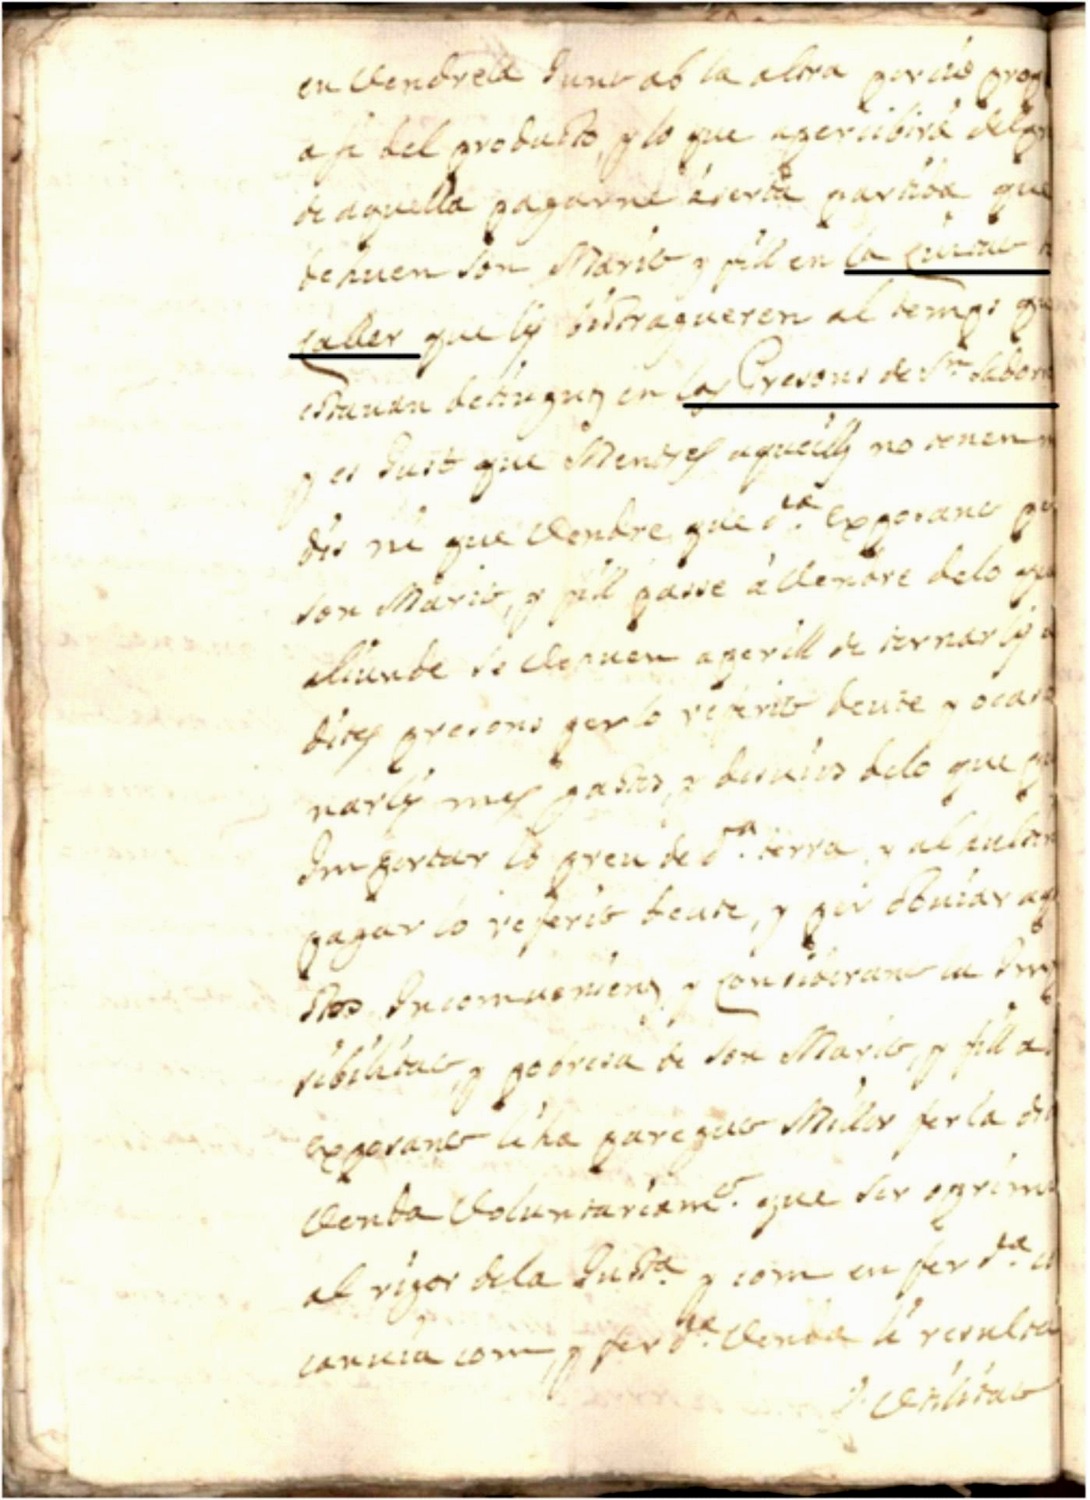 en Vendrela Junt ab la altra porció prop
a fi del producto, y lo que apercibirá del pr
de aquella pagarne á certa partida que
dehuen son Marit y fill en la Ciutat
Caller que lij bistragueren al temps qu
estavan detingug en las Presons de Sn. Sadorn
y es Just que Mentres aquellg no tenen
dis ni que Vendre que da. exposant per
son Marit, y fill passe á Vendre de lo que
aliunde se Dehuen a perill de tornarlij a
dites presons per lo referit deute y ocasio
narlij mes gastos, y desvios de lo que pu
Importar lo preu de da. terra y al ultim
pagar lo referit deute, y per obviar aq
stos Inconvenieng y Considerant la Imp
sibilitat, y pobresa de son Marit, y fill a.
exposant li ha paregut Millor fer la dit
Venda Voluntariamt. que ser oprimi
al rigor de la Justa. y com en fer da.
canvia com, y fer da. Venda li resulta
Utilitat